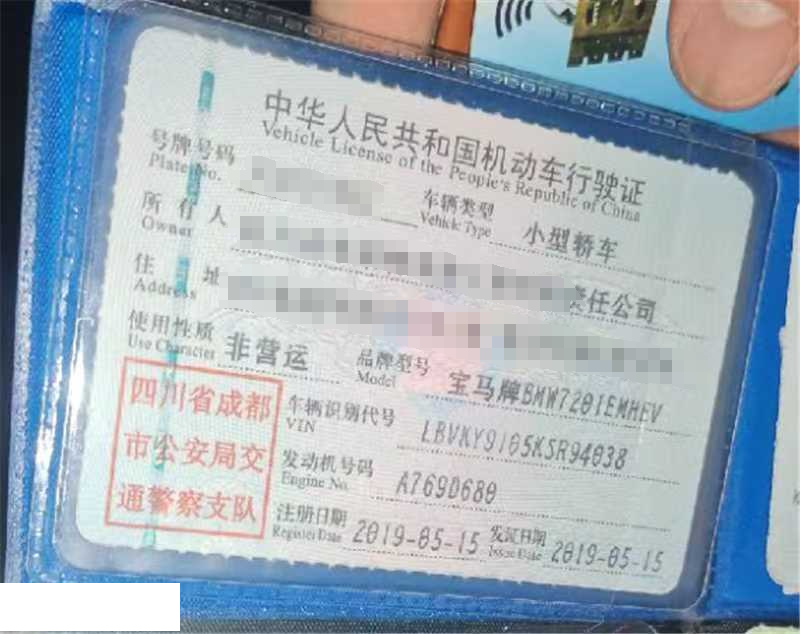 中华人民共和国机动车行驶证
Vehicle License of the People's Republic of China
号牌号码
Plate No.
车辆类型 小型轿车
Vehicle Type
所有人 责任公司
Owner
住址
Address
使用性质 非营运
Use Character
品牌型号 宝马牌BMW7201EMHEV
Model
四川省成都
市公安局交
通警察支队
车辆识别代号 LBVKY9105KSR94038
VIN
发动机号码 A769D680
Engine No.
注册日期 2019-05-15
Register Date
发证日期 2019-05-15
Issue Date